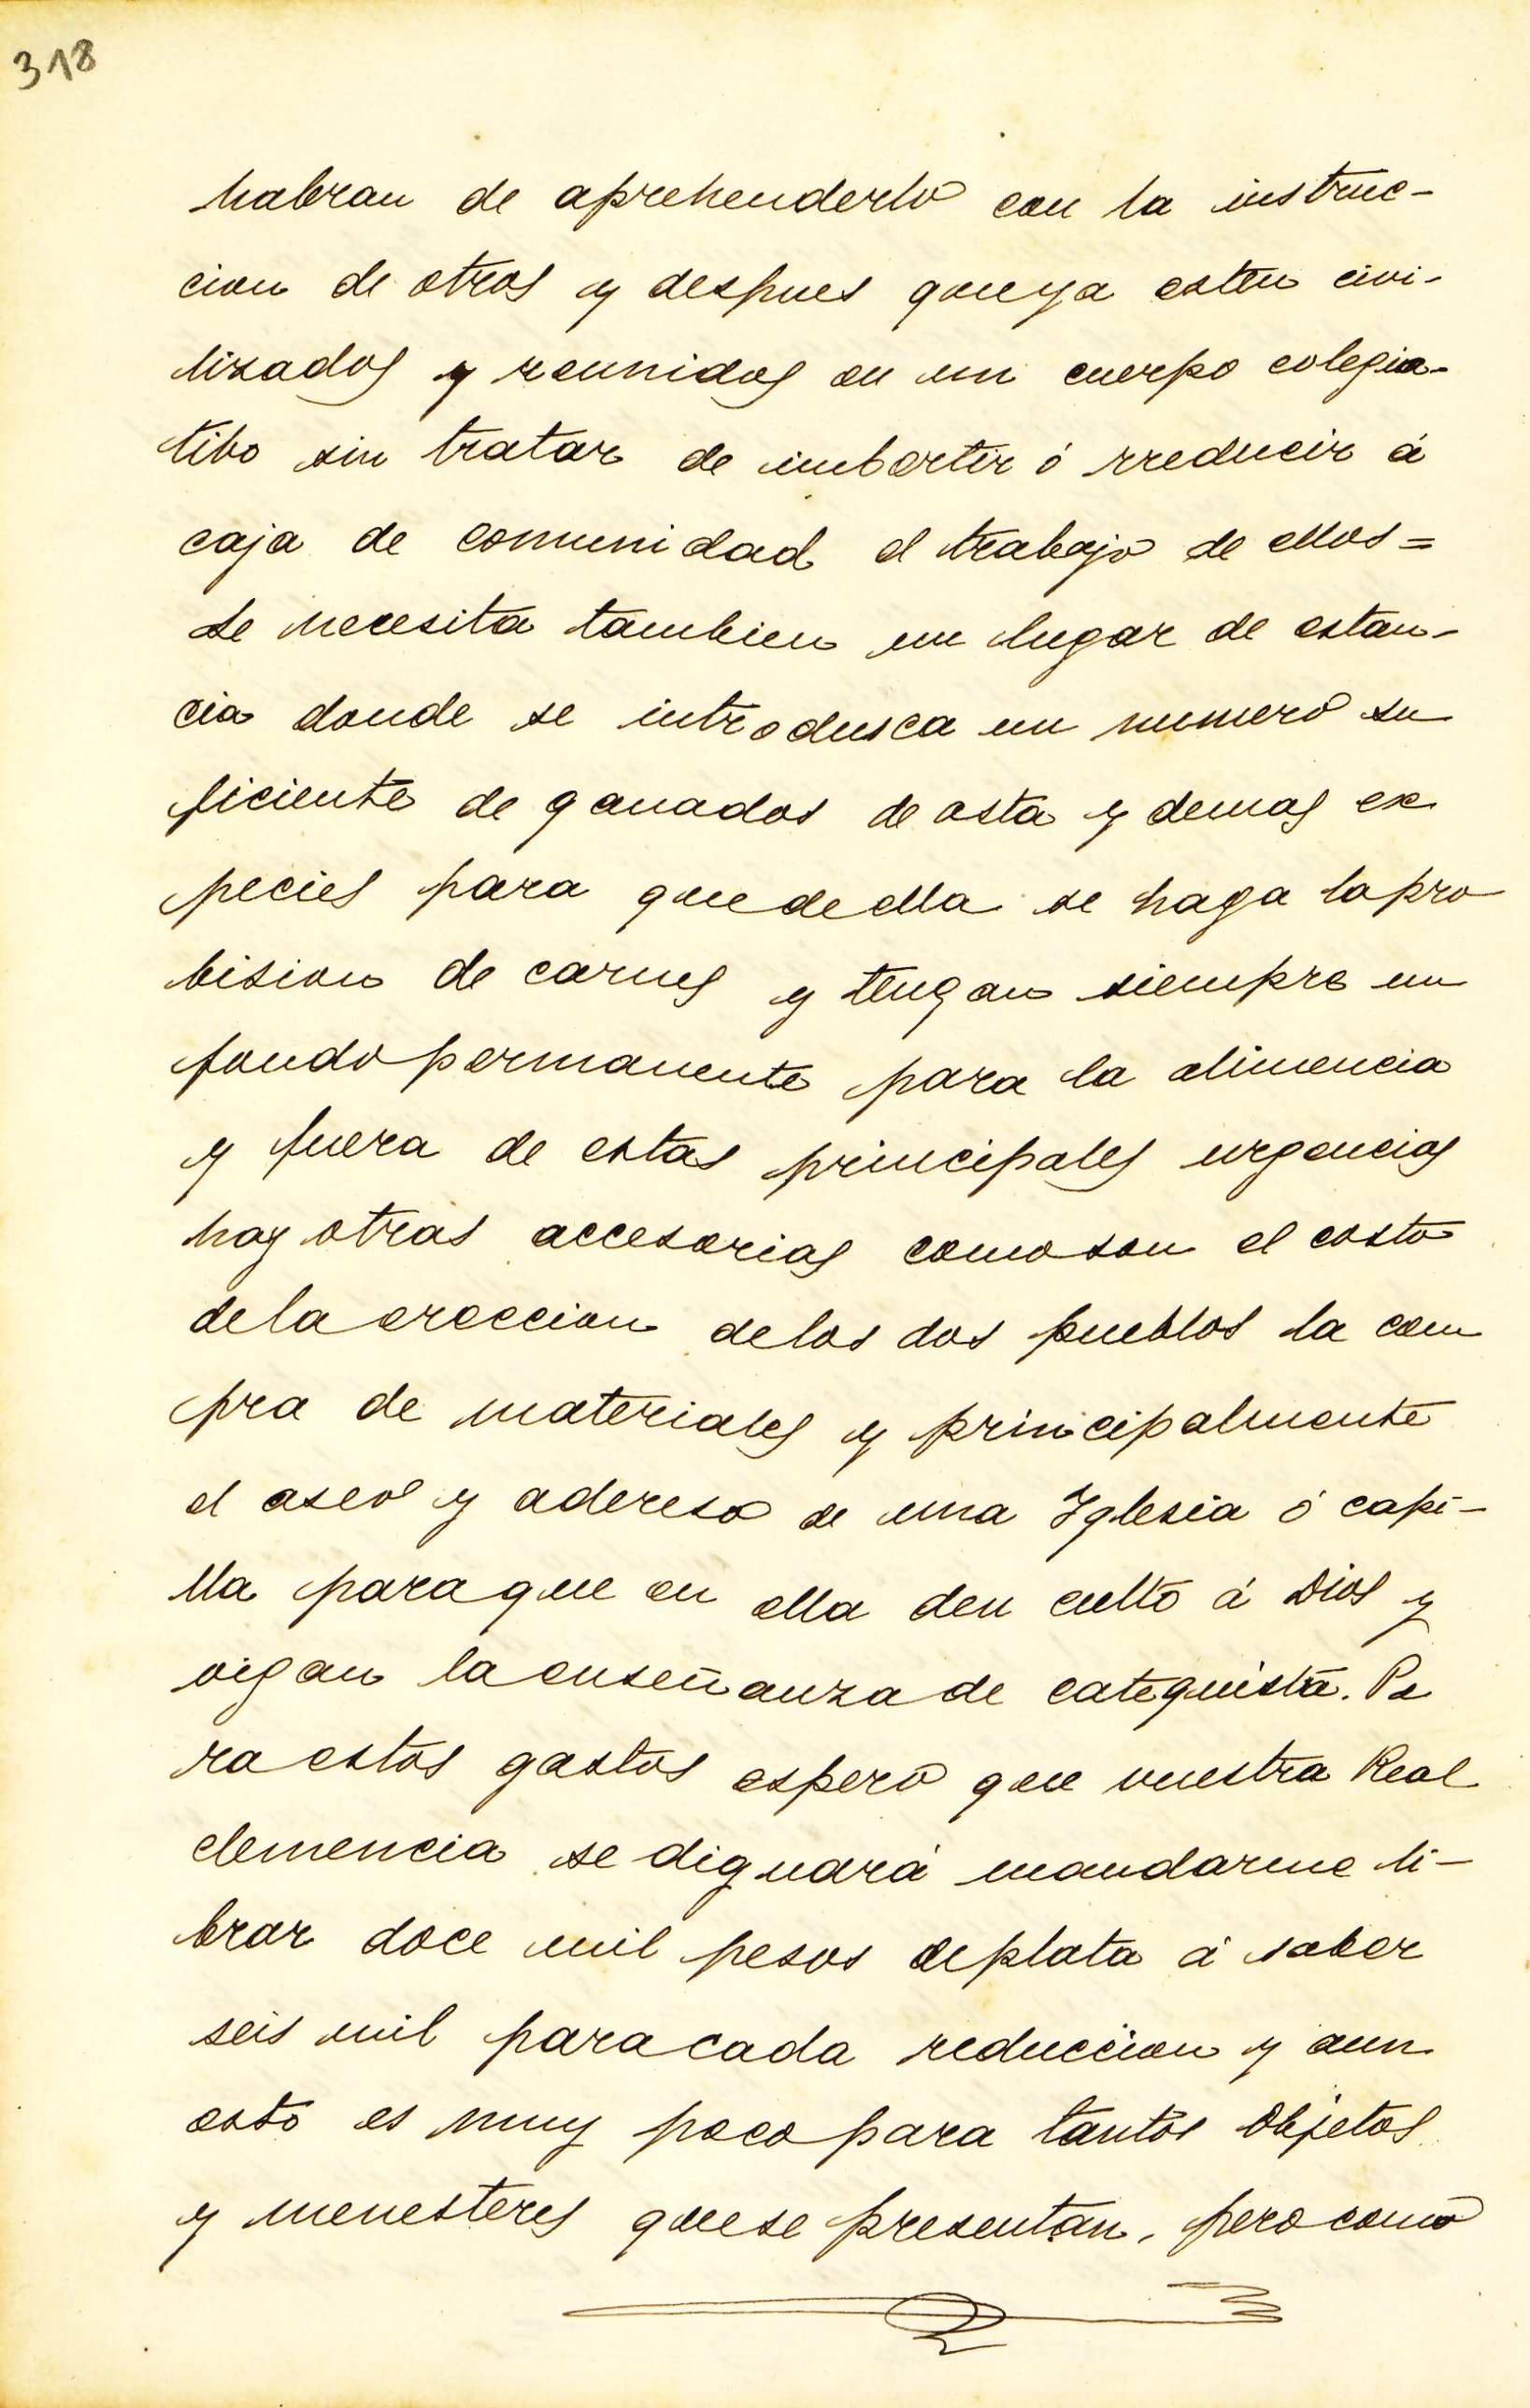 318
habran de aprehenderlo con la instruc-
cion de otros y despues que ya esten civi-
lizados y reunidos en un cuerpo colegia-
tibo sin tratar de imbertir ó rreducir á
caja de comunidad el trabajo de ellos=
se necesita tambien un lugar de estan-
cia donde se introdusca un numero su
ficiente de ganados de asta y demas es
pecies para que de ella se haga la pro
bision de carnes y tengan siempre un
fondo permanente para la alimencia
y fuera de estas principales urgencias
hay otras accesorias como son el costo
de la ereccion de los dos pueblos la com
pra de materiales y principalmente
el aseo y adereso de una Iglesia ó capi-
lla para que en ella den culto á Dios y
oigan la enseñanza de catequista. Pa
ra estos gastos espero que vuestra Real
clemencia se dignará mandarme li-
brar doce mil pesos de plata á saber
seis mil para cada reduccion y aun
esto es muy poco para tantos objetos
y menesteres que se presentan, pero como